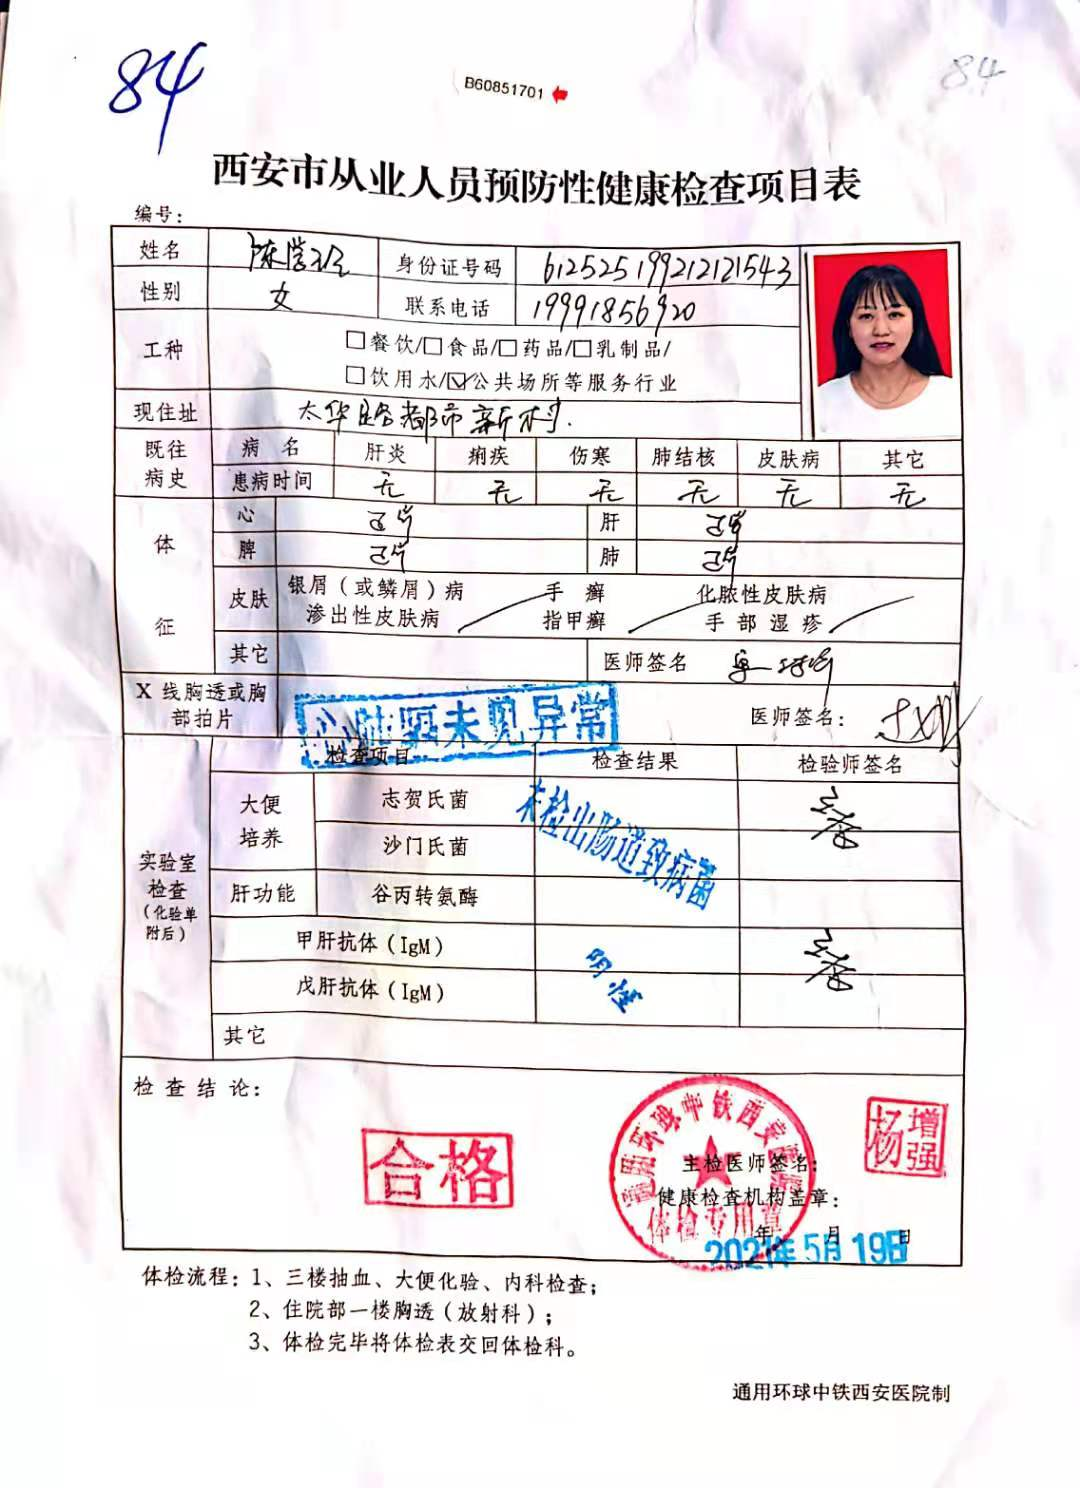 84
B60851701
84
西安市从业人员预防性健康检查项目表
编号：
姓名 身份证号码 612525199212121543
性别 女 联系电话 19991856920
工种 □餐饮/□食品/□药品/□乳制品/
□饮用水/☑公共场所等服务行业
现住址 太华路都市新村.
既往病史 病名 肝炎 痢疾 伤寒 肺结核 皮肤病 其它
患病时间 无 无 无 无 无 无
体征 心 正常 肝 正常
脾 正常 肺 正常
皮肤 银屑（或鳞屑）病 手癣 化脓性皮肤病
渗出性皮肤病 指甲癣 手部湿疹
其它 医师签名
X线胸透或胸部拍片 心肺膈未见异常 医师签名：
实验室检查（化验单附后） 检查项目 检查结果 检验师签名
大便培养 志贺氏菌 未检出肠道致病菌
沙门氏菌
肝功能 谷丙转氨酶
甲肝抗体（IgM） 阴性
戊肝抗体（IgM）
其它
检查结论：
合格
通用环球中铁西安医院
体检专用章
杨增强
主检医师签名：
健康检查机构盖章：
年 月 日
2021年5月19日
体检流程：1、三楼抽血、大便化验、内科检查；
2、住院部一楼胸透（放射科）；
3、体检完毕将体检表交回体检科。
通用环球中铁西安医院制